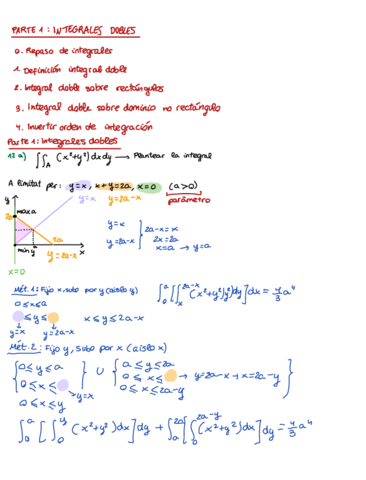 PARTE 1: INTEGRALES DOBLES
0. Repaso de integrales
1. Definición integral doble
2. Integral doble sobre rectángulos
3. Integral doble sobre dominio no rectángulo
4. Invertir orden de integración
Parte 1: Integrales dobles
12 a) ∬_A (x²+y²) dx dy → Plantear la integral
A limitat per: y=x, x+y=2a, x=0 (a>0)
y=x y=2a-x parámetro
y
2a max a
min y 2a x
y=2a-x
x=0
y=x
y=2a-x
2a-x=x
2x=2a
x=a → y=a
Mét.1: Fijo x, subo por y (aíslo y)
0≤x≤a
≤y≤
y=x y=2a-x
x≤y≤2a-x
Mét.2: Fijo y, subo por x (aíslo x)
0≤y≤a
0≤x≤
y=x
0≤x≤y
∪
a≤y≤2a
0≤x≤ → y=2a-x → x=2a-y
0≤x≤2a-y
∫₀^a [∫₀^y (x²+y²)dx]dy + ∫_a^2a [∫₀^2a-y (x²+y²)dx]dy = 4/3 a⁴